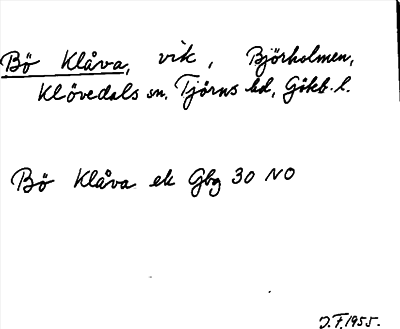 Bö Klåva, vik, Björholmen,
Klövedals sn. Tjörns hd, Gökb. l.
Bö Klåva ek Gbg 30 NO
J.F. 1955.